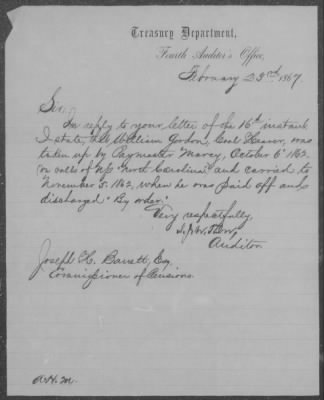 Treasury Department,
Fourth Auditor's Office,
February 23rd 1867.
Sir,
In reply to your letter of the 16th instant
I state, that William Gordon, Coal Heaver, was
taken up by Paymaster Marcy, October 6" 1862,
on rolls of "North Carolina" and carried to
November 5, 1862, when he was paid off and
discharged "By order."
Very respectfully,
Auditor
Joseph H. Barrett, Esq.
Commissioner of Pensions.